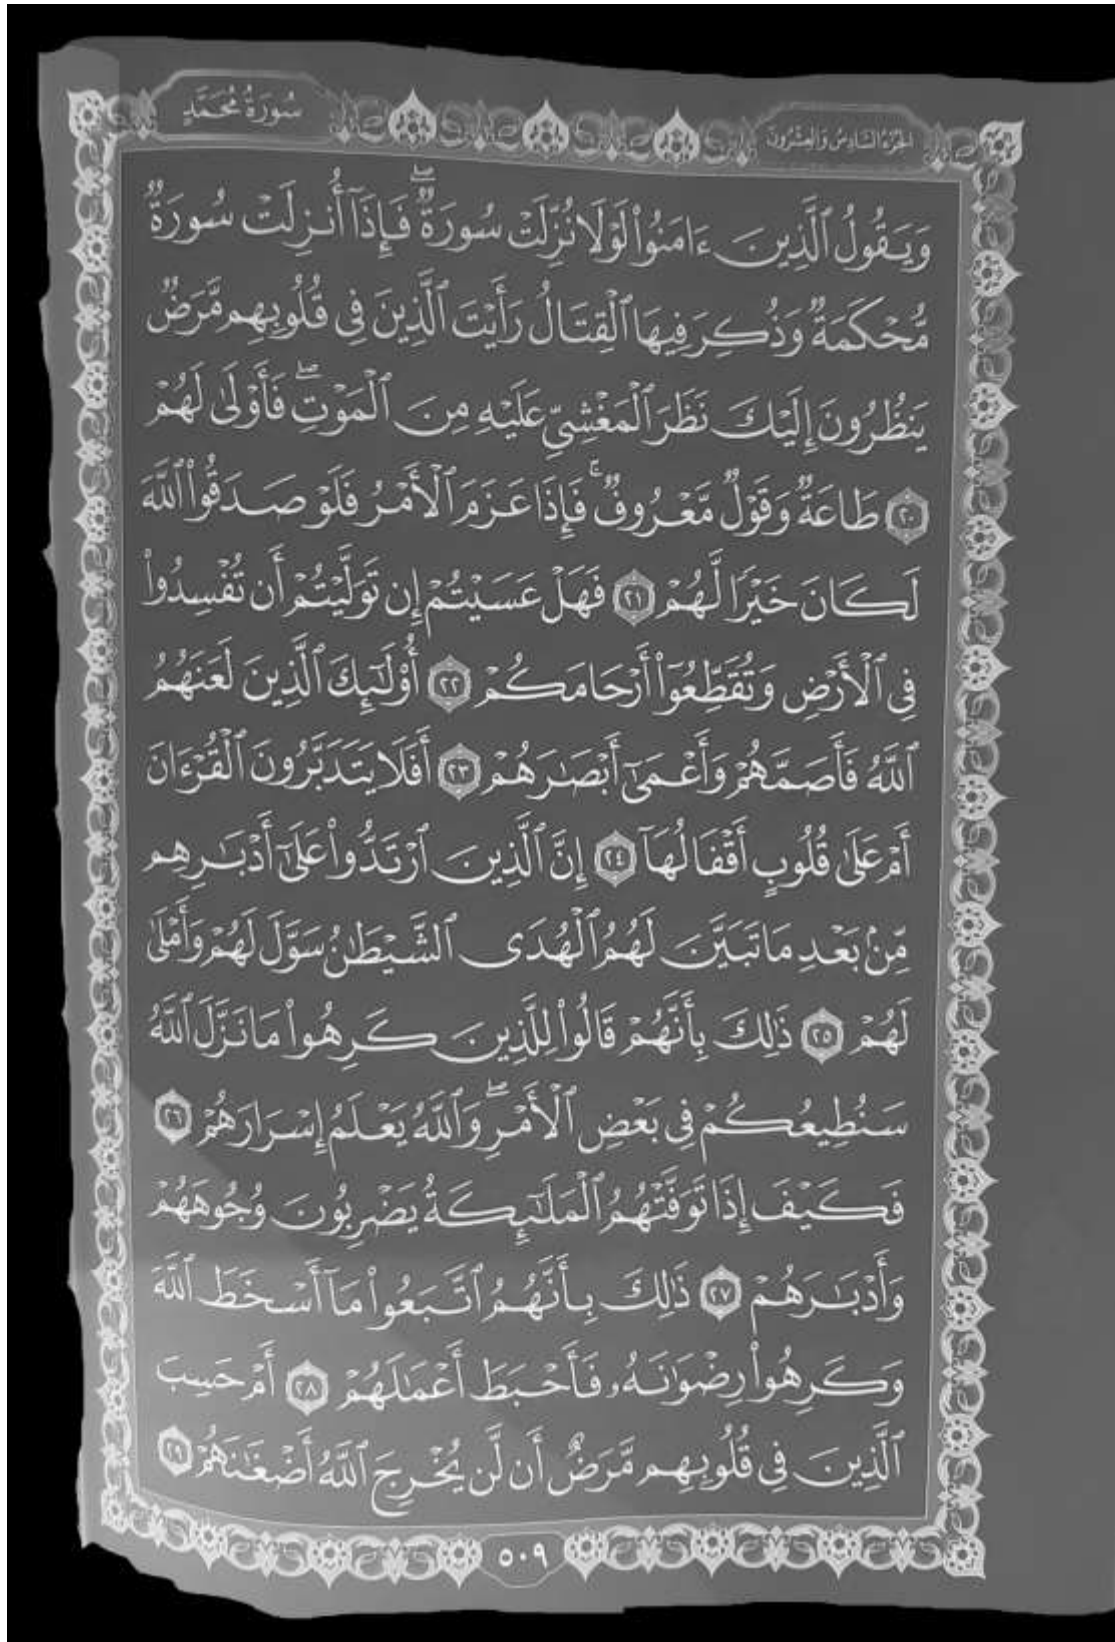 الجزء السادس والعشرون
سورة محمد
وَيَقُولُ ٱلَّذِينَ ءَامَنُوا۟ لَوْلَا نُزِّلَتْ سُورَةٌۖ فَإِذَآ أُنزِلَتْ سُورَةٌ
مُّحْكَمَةٌ وَذُكِرَ فِيهَا ٱلْقِتَالُ رَأَيْتَ ٱلَّذِينَ فِى قُلُوبِهِم مَّرَضٌ
يَنظُرُونَ إِلَيْكَ نَظَرَ ٱلْمَغْشِىِّ عَلَيْهِ مِنَ ٱلْمَوْتِۖ فَأَوْلَىٰ لَهُمْ
٢٠ طَاعَةٌ وَقَوْلٌ مَّعْرُوفٌۚ فَإِذَا عَزَمَ ٱلْأَمْرُ فَلَوْ صَدَقُوا۟ ٱللَّهَ
لَكَانَ خَيْرًا لَّهُمْ ٢١ فَهَلْ عَسَيْتُمْ إِن تَوَلَّيْتُمْ أَن تُفْسِدُوا۟
فِى ٱلْأَرْضِ وَتُقَطِّعُوٓا۟ أَرْحَامَكُمْ ٢٢ أُو۟لَٰٓئِكَ ٱلَّذِينَ لَعَنَهُمُ
ٱللَّهُ فَأَصَمَّهُمْ وَأَعْمَىٰٓ أَبْصَٰرَهُمْ ٢٣ أَفَلَا يَتَدَبَّرُونَ ٱلْقُرْءَانَ
أَمْ عَلَىٰ قُلُوبٍ أَقْفَالُهَآ ٢٤ إِنَّ ٱلَّذِينَ ٱرْتَدُّوا۟ عَلَىٰٓ أَدْبَٰرِهِم
مِّنۢ بَعْدِ مَا تَبَيَّنَ لَهُمُ ٱلْهُدَى ٱلشَّيْطَٰنُ سَوَّلَ لَهُمْ وَأَمْلَىٰ
لَهُمْ ٢٥ ذَٰلِكَ بِأَنَّهُمْ قَالُوا۟ لِلَّذِينَ كَرِهُوا۟ مَا نَزَّلَ ٱللَّهُ
سَنُطِيعُكُمْ فِى بَعْضِ ٱلْأَمْرِۖ وَٱللَّهُ يَعْلَمُ إِسْرَارَهُمْ ٢٦
فَكَيْفَ إِذَا تَوَفَّتْهُمُ ٱلْمَلَٰٓئِكَةُ يَضْرِبُونَ وُجُوهَهُمْ
وَأَدْبَٰرَهُمْ ٢٧ ذَٰلِكَ بِأَنَّهُمُ ٱتَّبَعُوا۟ مَآ أَسْخَطَ ٱللَّهَ
وَكَرِهُوا۟ رِضْوَٰنَهُۥ فَأَحْبَطَ أَعْمَٰلَهُمْ ٢٨ أَمْ حَسِبَ
ٱلَّذِينَ فِى قُلُوبِهِم مَّرَضٌ أَن لَّن يُخْرِجَ ٱللَّهُ أَضْغَٰنَهُمْ ٢٩
٥٠٩